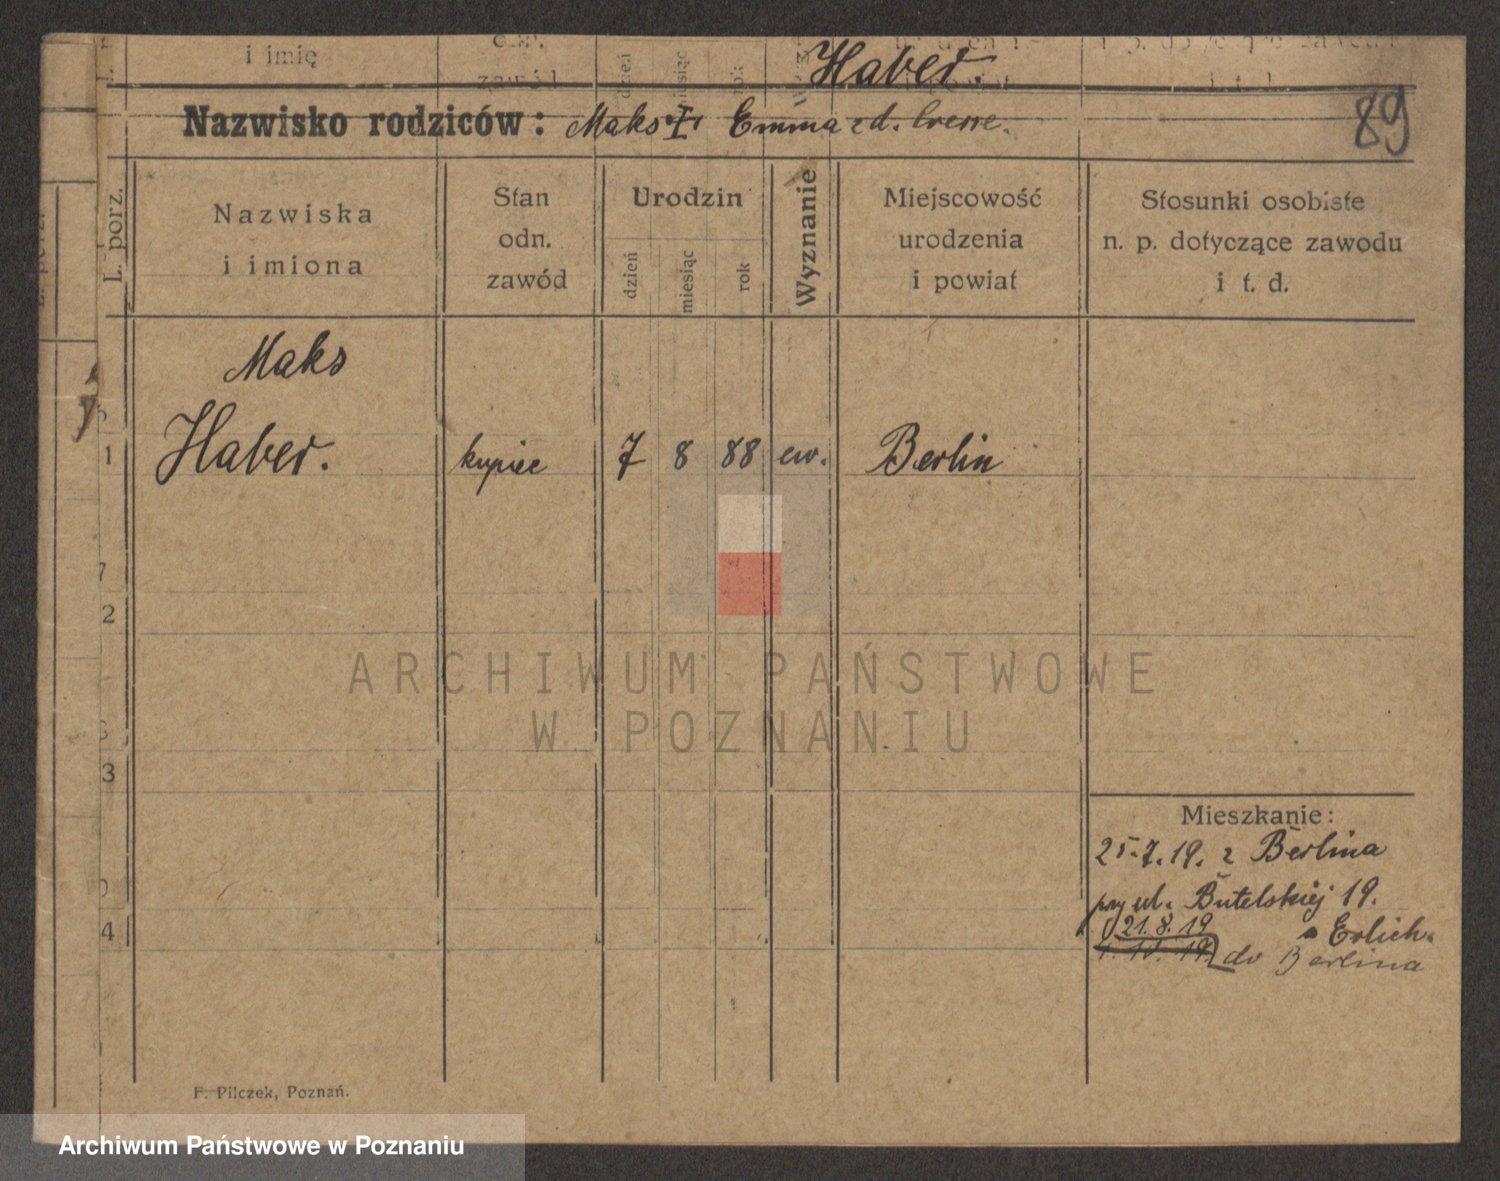 i imię
zawód
Haber.
Nazwisko rodziców: Maks i Emma zd.
89
L. porz.
Nazwiska
i imiona
Stan
odn.
zawód
Urodzin
dzień
miesiąc
rok
Wyznanie
Miejscowość
urodzenia
i powiat
Stosunki osobiste
n. p. dotyczące zawodu
i t. d.
Maks
1 Haber. kupiec 7 8 88 ew. Berlin
2
3
4
Mieszkanie:
25.7.19. z Berlina
przy ul. Butelskiej 19.
21.8.19 Erlich.
do Berlina
F. Pilczek, Poznań.
ARCHIWUM PAŃSTWOWE
W POZNANIU
Archiwum Państwowe w Poznaniu